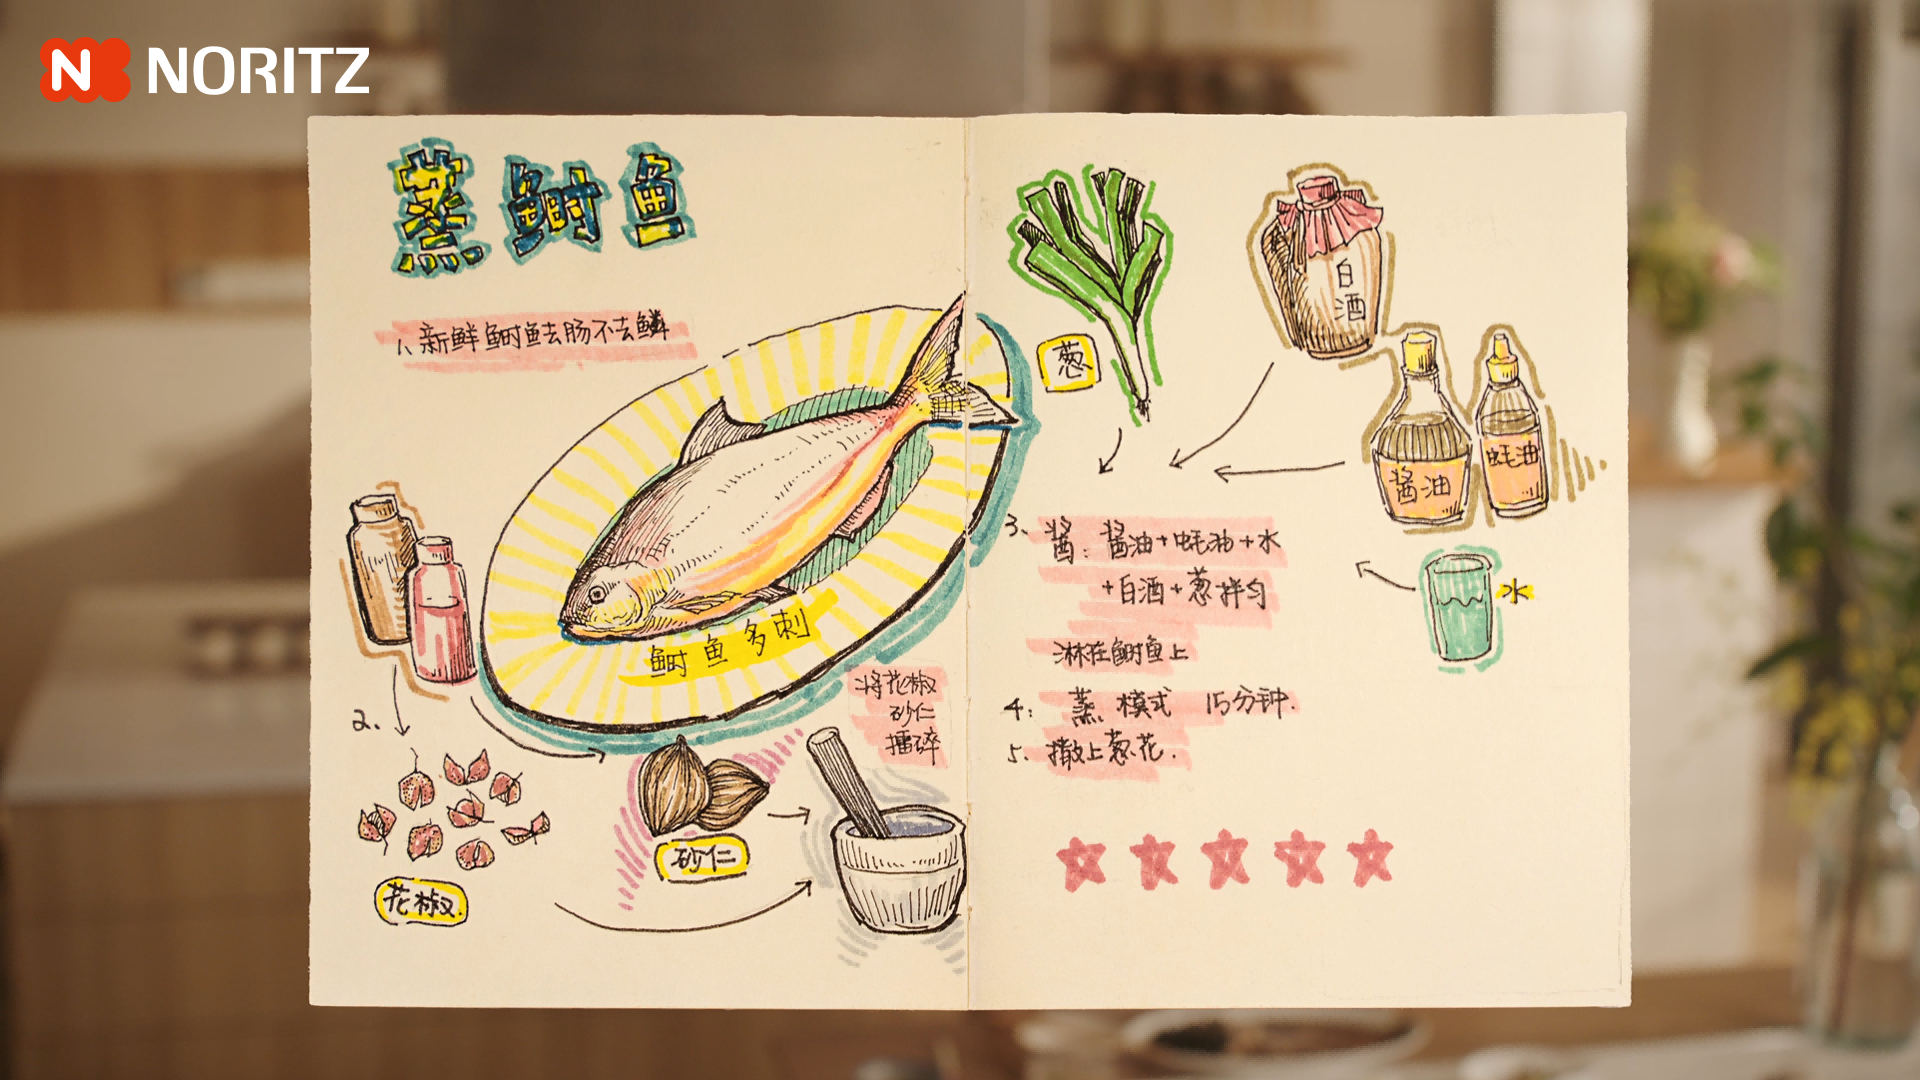 NORITZ
蒸鲥鱼
1、新鲜鲥鱼去肠不去鳞
鲥鱼多刺
2.
花椒
砂仁
将花椒
砂仁
擂碎
葱
白酒
酱油
蚝油
水
3、酱：酱油+蚝油+水
+白酒+葱拌匀
淋在鲥鱼上
4: 蒸模式 15分钟.
5. 撒上葱花.